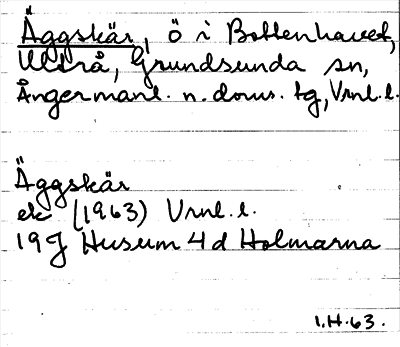 Äggskär, ö i Bottenhavet,
Ulvå, Grundsunda sn,
Ångermanl. n. doms. tg, Vrnl. l.
Äggskär
ek (1963) Vrnl. l.
19J Husum 4d Holmarna
1.H.63.